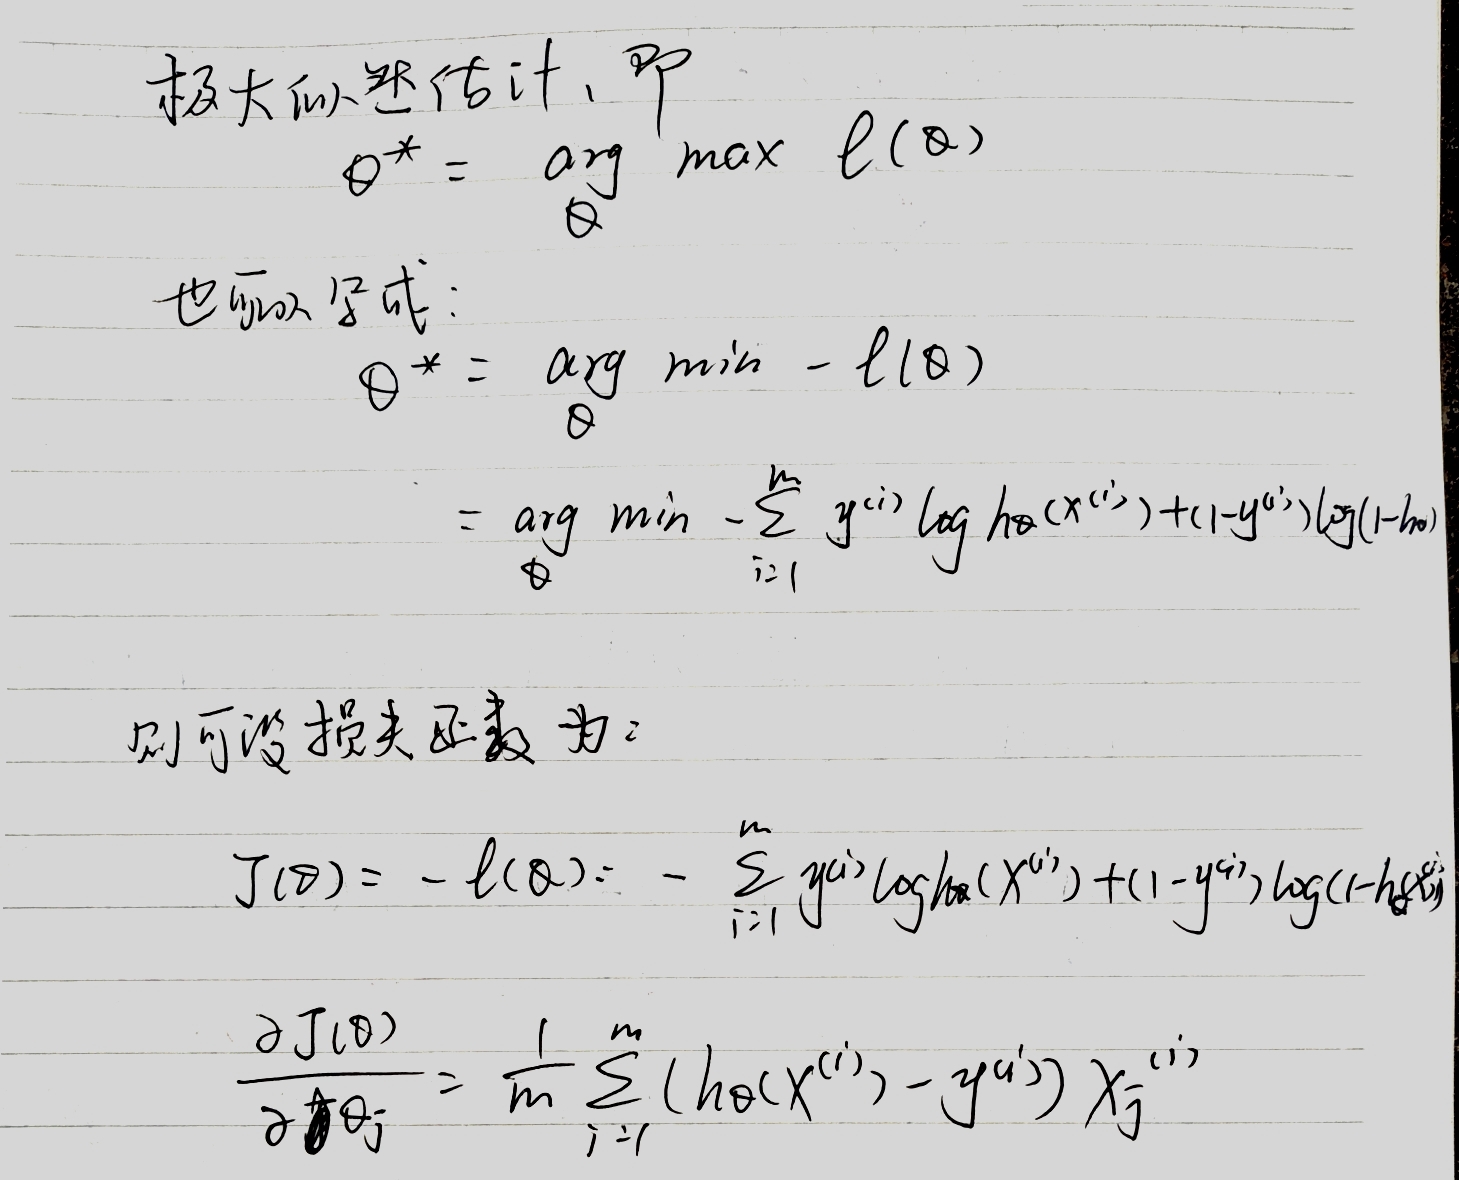 极大似然估计、即
θ* = arg max ℓ(θ)
θ
也可以写成:
θ* = arg min - ℓ(θ)
θ
= arg min - ∑ᵢ₌₁ᵐ y⁽ⁱ⁾ log hθ(x⁽ⁱ⁾) + (1-y⁽ⁱ⁾) log(1-hθ)
θ
则可设损失函数为:
J(θ) = - ℓ(θ) = - ∑ᵢ₌₁ᵐ y⁽ⁱ⁾ log hθ(x⁽ⁱ⁾) + (1-y⁽ⁱ⁾) log(1-hθ(x⁽ⁱ⁾))
∂J(θ)/∂θⱼ = 1/m ∑ᵢ₌₁ᵐ (hθ(x⁽ⁱ⁾) - y⁽ⁱ⁾) xⱼ⁽ⁱ⁾